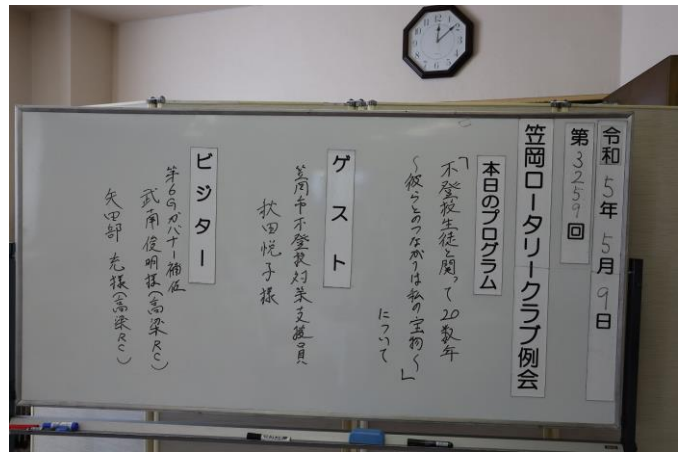 令和5年5月9日
第3259回
笠岡ロータリークラブ例会
本日のプログラム
「不登校生徒と関って20数年
～彼らとのつながりは私の宝物～」
について
ゲスト
笠岡市不登校対策支援員
秋田悦子様
ビジター
第6Gガバナー補佐
武南俊明様(高梁RC)
矢田部 光様(高梁RC)